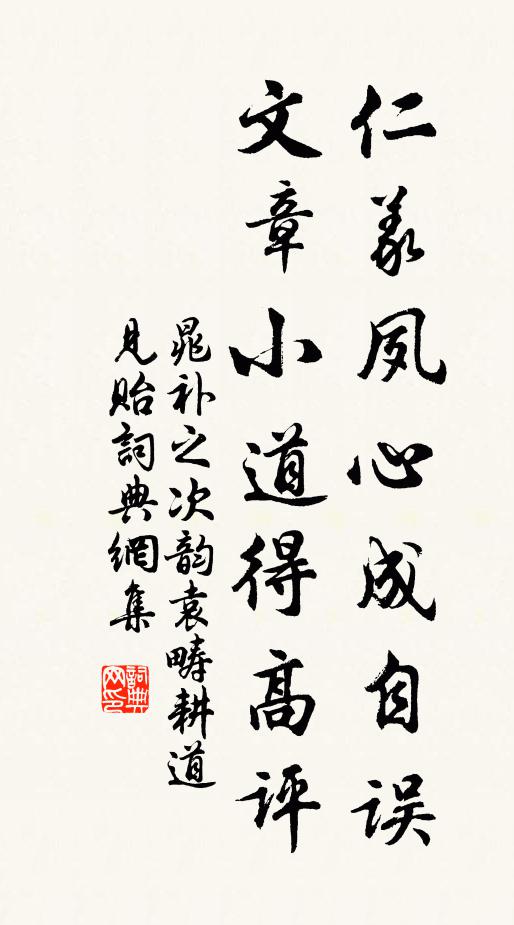 仁义夙心成自误
文章小道得高评
晁补之次韵袁畴耕道
見贻詞典網集
詞典
网印